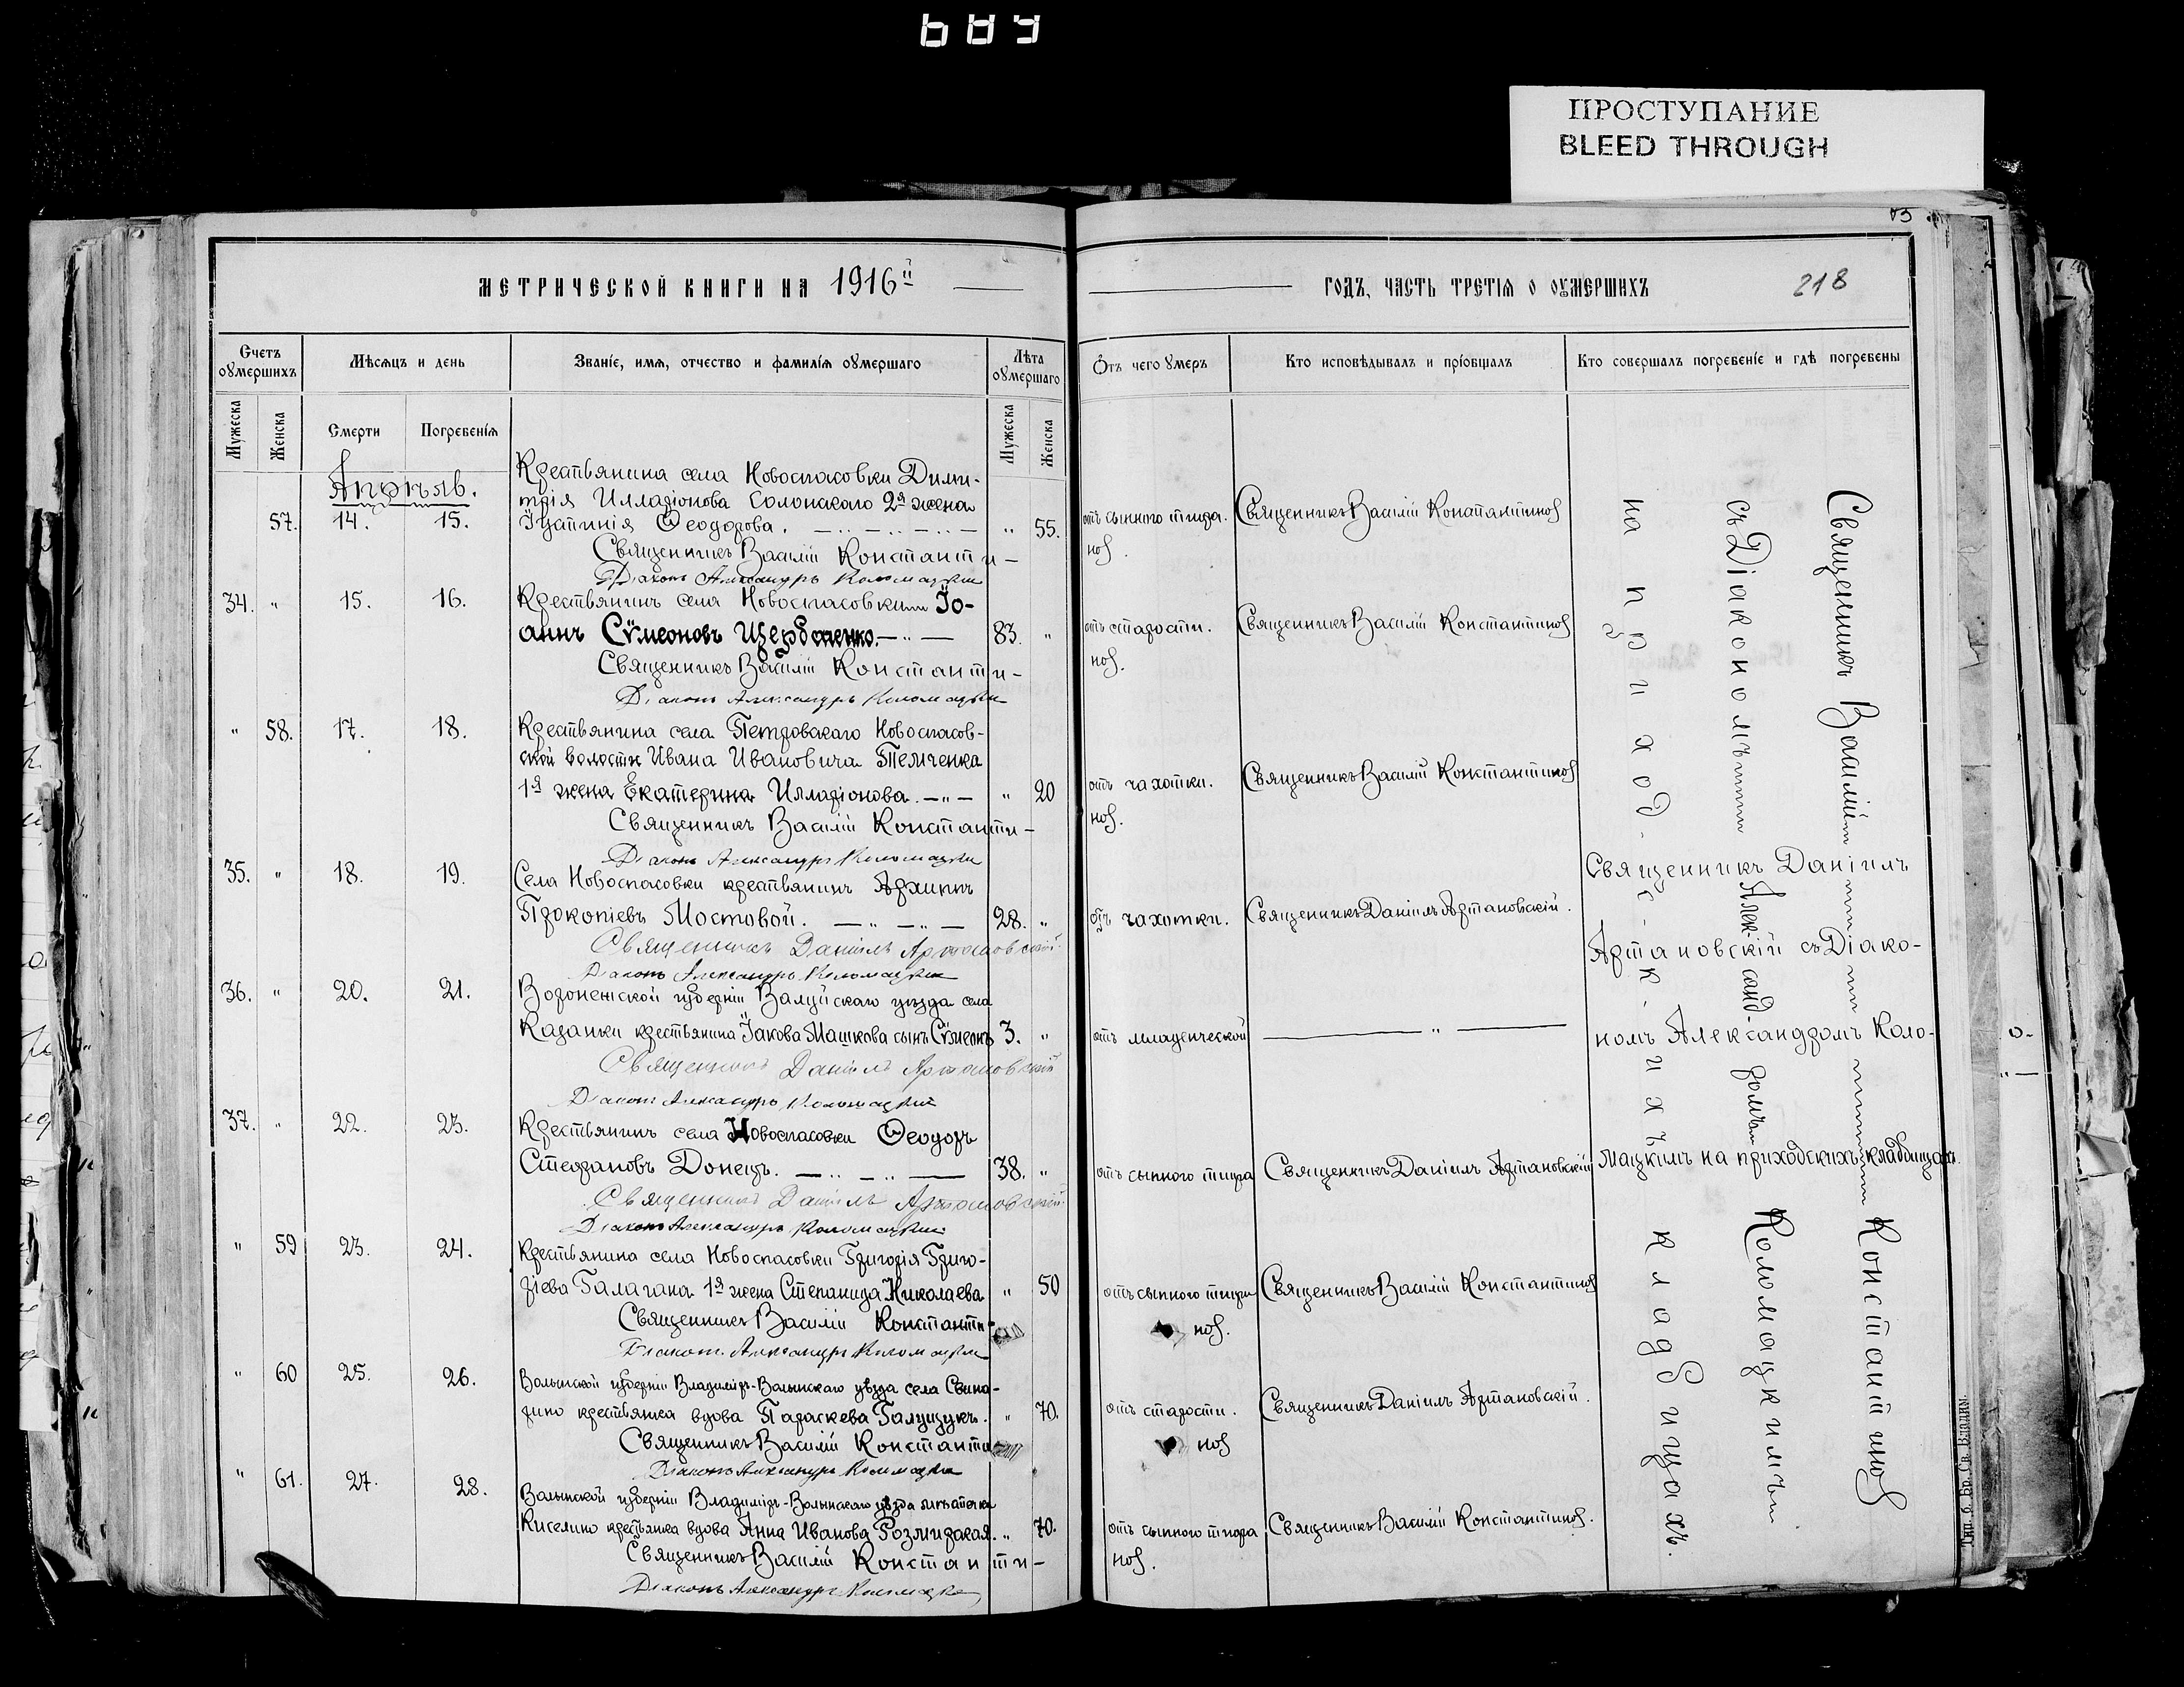 689
ПРОСТУПАНИЕ
BLEED THROUGH
МЕТРИЧЕСКОЙ КНИГИ НА 1916й
ГОДЪ, ЧАСТЬ ТРЕТІЯ О ОУМЕРШИХЪ
218
Счетъ оумершихъ
Мѣсяцъ и день
Званіе, имя, отчество и фамилія оумершаго
Лѣта оумершаго
Отъ чего умеръ
Кто исповѣдывалъ и пріобщалъ
Кто совершалъ погребеніе и гдѣ погребены
Мужеска
Женска
Смерти
Погребенія
Мужеска
Женска
Апрѣль.
Крестьянина села Новоспасовки Дими-
трія Илларіонова Солонскаго 2я жена
57. 14. 15. Їустинія Ѳеодорова. " 55. отъ сыпного тифа. Священникъ Василій Константинов
Священникъ Василій Константи-
нов.
Діаконъ Александръ Коломацкій
34. " 15. 16. Крестьянинъ села Новоспасовки Іо-
аннъ Сѵмеоновъ Щербаченко. 83. " отъ старости. Священникъ Василій Константинов
Священникъ Василій Константи-
нов.
Діаконъ Александръ Коломацкій
" 58. 17. 18. Крестьянина села Петровскаго Новоспасов-
ской волости Ивана Ивановича Темченка
1я жена Екатерина Илларіонова. " 20 отъ чахотки. Священникъ Василій Константинов
Священникъ Василій Константи-
нов.
Діаконъ Александръ Коломацкій
35. " 18. 19. Села Новоспасовки крестьянинъ Архипъ
Прокопіевъ Мостовой. 28. " отъ чахотки. Священникъ Даніилъ Артановскій.
Священникъ Даніилъ Артановскій
Діаконъ Александръ Коломацкій
36. " 20. 21. Воронежской губерніи Валуйскаго уѣзда села
Казанки крестьянина Іакова Машкова сынъ Сѵмеонъ 3. " отъ младенческой "
Священникъ Даніилъ Артановскій
Діаконъ Александръ Коломацкій
37. " 22. 23. Крестьянинъ села Новоспасовки Ѳеодоръ
Стефановъ Донецъ. 38. " отъ сыпного тифа Священникъ Даніилъ Артановскій
Священникъ Даніилъ Артановскій
Діаконъ Александръ Коломацкій
" 59 23. 24. Крестьянина села Новоспасовки Григорія Григо-
ріева Галагана 1я жена Степанида Николаева " 50 отъ сыпного тифа Священникъ Василій Константинов
Священникъ Василій Константи-
нов.
Діаконъ Александръ Коломацкій
" 60 25. 26. Волынской губерніи Владиміръ-Волынскаго уѣзда села Свина-
рино крестьянка вдова Параскева Галущукъ. " 70. отъ старости. Священникъ Даніилъ Артановскій.
Священникъ Василій Константи
нов
Діаконъ Александръ Коломацкій
" 61. 27. 28. Волынской губерніи Владиміръ-Волынскаго уѣзда мѣстечка
Киселино крестьянка вдова Анна Иванова " 70. отъ сыпного тифа Священникъ Василій Константинов.
Священникъ Василій Константи-
нов.
Діаконъ Александръ Коломацкій
Священникъ Василій Константинов
съ Діакономъ Александромъ Коломацкимъ
на приходскихъ кладбищахъ.
Священникъ Даніилъ
Артановскій съ Діако-
номъ Александромъ Коло-
мацкимъ на приходскихъ кладбищахъ.
Тип. б. Бр. Св. Владим.